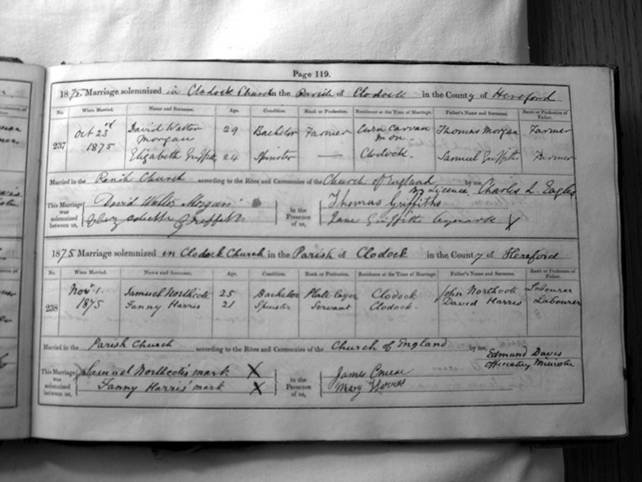 Page 119.
1875. Marriage solemnized in Clodock Church in the Parish of Clodock in the County of Hereford
No. When Married. Name and Surname. Age. Condition. Rank or Profession. Residence at the Time of Marriage. Father's Name and Surname. Rank or Profession of Father.
237 Oct 23rd 1875 David Walter Morgan 29 Bachelor Farmer Mon Thomas Morgan Farmer
Elizabeth Griffith 24 Spinster — Clodock. Samuel Griffith Farmer
Married in the Parish Church according to the Rites and Ceremonies of the Church of England by me,
by Licence, Charles L. Eagles
This Marriage was solemnized between us, David Walter Morgan in the Presence of us, Thomas Griffiths
Griffith Jane Griffith X
1875 Marriage solemnized in Clodock Church in the Parish of Clodock in the County of Hereford
No. When Married. Name and Surname. Age. Condition. Rank or Profession. Residence at the Time of Marriage. Father's Name and Surname. Rank or Profession of Father.
238 Nov. 1. 1875 Samuel Northcote 25 Bachelor Plate layer Clodock John Northcote Labourer
Fanny Harris 21 Spinster Servant Clodock. David Harris Labourer
Married in the Parish Church according to the Rites and Ceremonies of the Church of England by me,
Edmund Davis
Minister
This Marriage was solemnized between us, Samuel Northcote's mark X in the Presence of us, James
Fanny Harris' mark X Mary